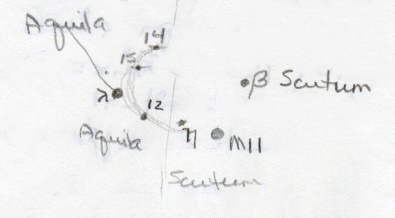 Aquila
14
15
β Scutum
λ
12
η
M11
Aquila
Scutum